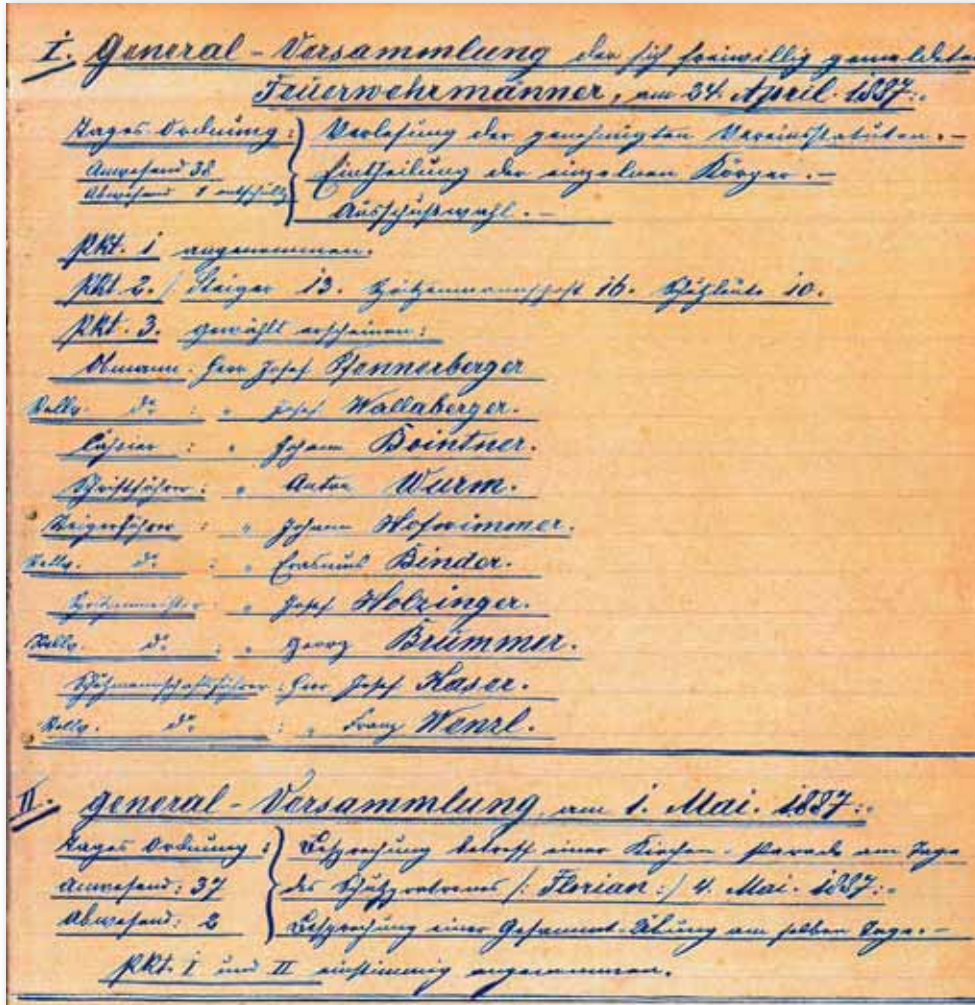 I. General-Versammlung der sich freiwillig gemeldeten
Feuerwehrmänner, am 24. April. 1887:.
Tages-Ordnung: Verlesung der genehmigten Vereinsstatuten.-
Anwesend 38 Eintheilung der einzelnen Körper.-
Abwesend 1 entschuldigt Ausschußwahl.-
Pkt. 1 angenommen.
Pkt. 2. Steiger 13. Spritzenmannschaft 16. Schutzleute 10.
Pkt. 3. gewählt erscheinen:
Obmann: Herr Josef Pfennerberger
Stellv. do : " Josef Wallaberger.
Cassier : " Johann Bointner.
Schriftführer: " Anton Wurm.
Steigerführer: " Johann Hofwimmer.
Stellv. do : " Erasmus Binder.
Spritzenmeister: " Josef Holzinger.
Stellv. do : " Georg Brümmer.
Schutzmannschaftsführer: Herr Josef Kaser.
Stellv. do : " Franz Wenzl.
II. General-Versammlung, am 1. Mai. 1887:.
Tages Ordnung: Besprechung betreff einer Kirchen-Parade am Tage
Anwesend: 37 des Schutzpatrones /: Florian :/ 4. Mai. 1887:.
Abwesend: 2 Besprechung einer Gesammt-Übung am selben Tage.-
Pkt. I und II einstimmig angenommen.